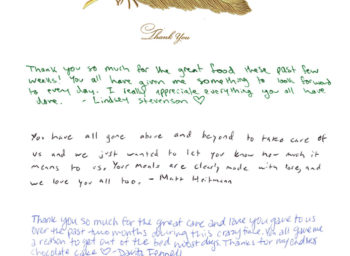 Thank You
Thank you so much for the great food these past few
weeks! You all have given me something to look forward
to every day. I really appreciate everything you all have
done. - Lindsey Stevenson ♡
You have all gone above and beyond to take care of
us and we just wanted to let you know how much it
means to us. Your meals are clearly made with love, and
we love you all too. - Matt Heitmann
Thank you so much for the great care and love you gave to us
over the past two months during this crazy time. Ya'll gave me
a reason to get out of the bed most days. Thanks for my endless
chocolate cake ♡ -